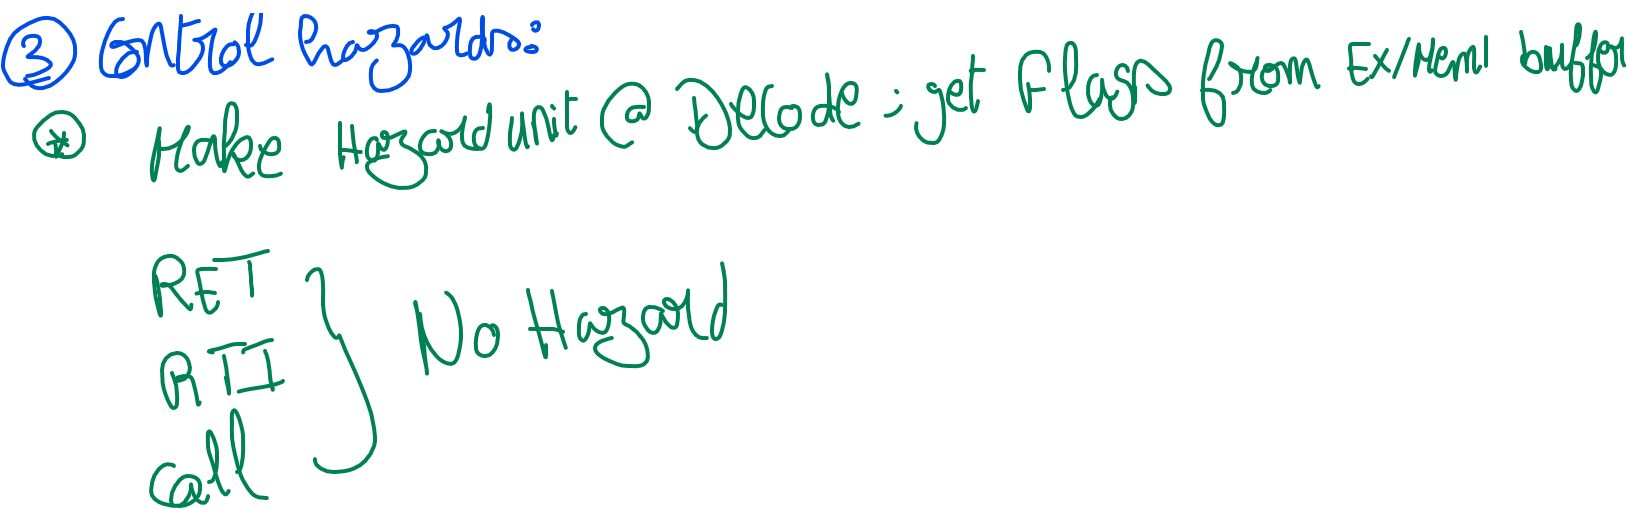 ③ Control hazards:
* Make Hazard unit @ Decode ; get Flags from Ex/Mem1 buffer
RET
RTI } No Hazard
Call